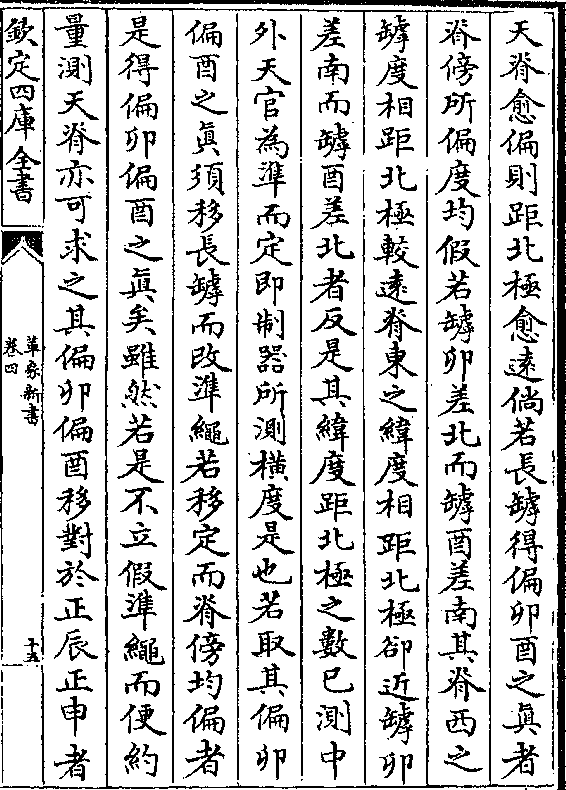 天脊愈偏則距北極愈逺倘若長罅得偏卯酉之眞者
脊傍所偏度均假若罅卯差北而罅酉差南其脊西之
罅度相距北極較逺脊東之緯度相距北極卻近罅卯
差南而罅酉差北者反是其緯度距北極之數已測中
外天官為凖而定即制器所測橫度是也若取其偏卯
偏酉之眞須移長罅而改準繩若移定而脊傍均偏者
是得偏卯偏酉之眞矣雖然若是不立假準繩而便約
量測天脊亦可求之其偏卯偏酉移對於正辰正申者
欽定四庫全書
革象新書
卷四
十五